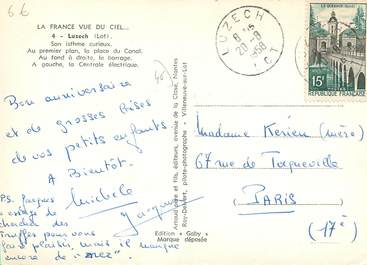 66
LA FRANCE VUE DU CIEL...
4 - Luzech (Lot).
Son isthme curieux.
Au premier plan, la place du Canal.
Au fond à droite, le barrage.
A gauche, la Centrale électrique.
Bon anniversaire
et de grosses bises
de vos petits enfants.
A Bientôt.
Michèle
Jacques
P.S. Jacques
a essayé de
chercher des
truffes pour vous
faire plaisir, mais il manque
encore de "nez"
Artaud père et fils, éditeurs, avenue de la Close, Nantes
Ray-Delvert, pilote-photographe - Villeneuve-sur-Lot
Edition "Gaby"
Marque déposée
LUZECH
20-9
1958
LOT
LE QUESNOY
15F
REPUBLIQUE FRANÇAISE
Madame Kerien (mère)
67 rue de Tocqueville
PARIS
(17e)